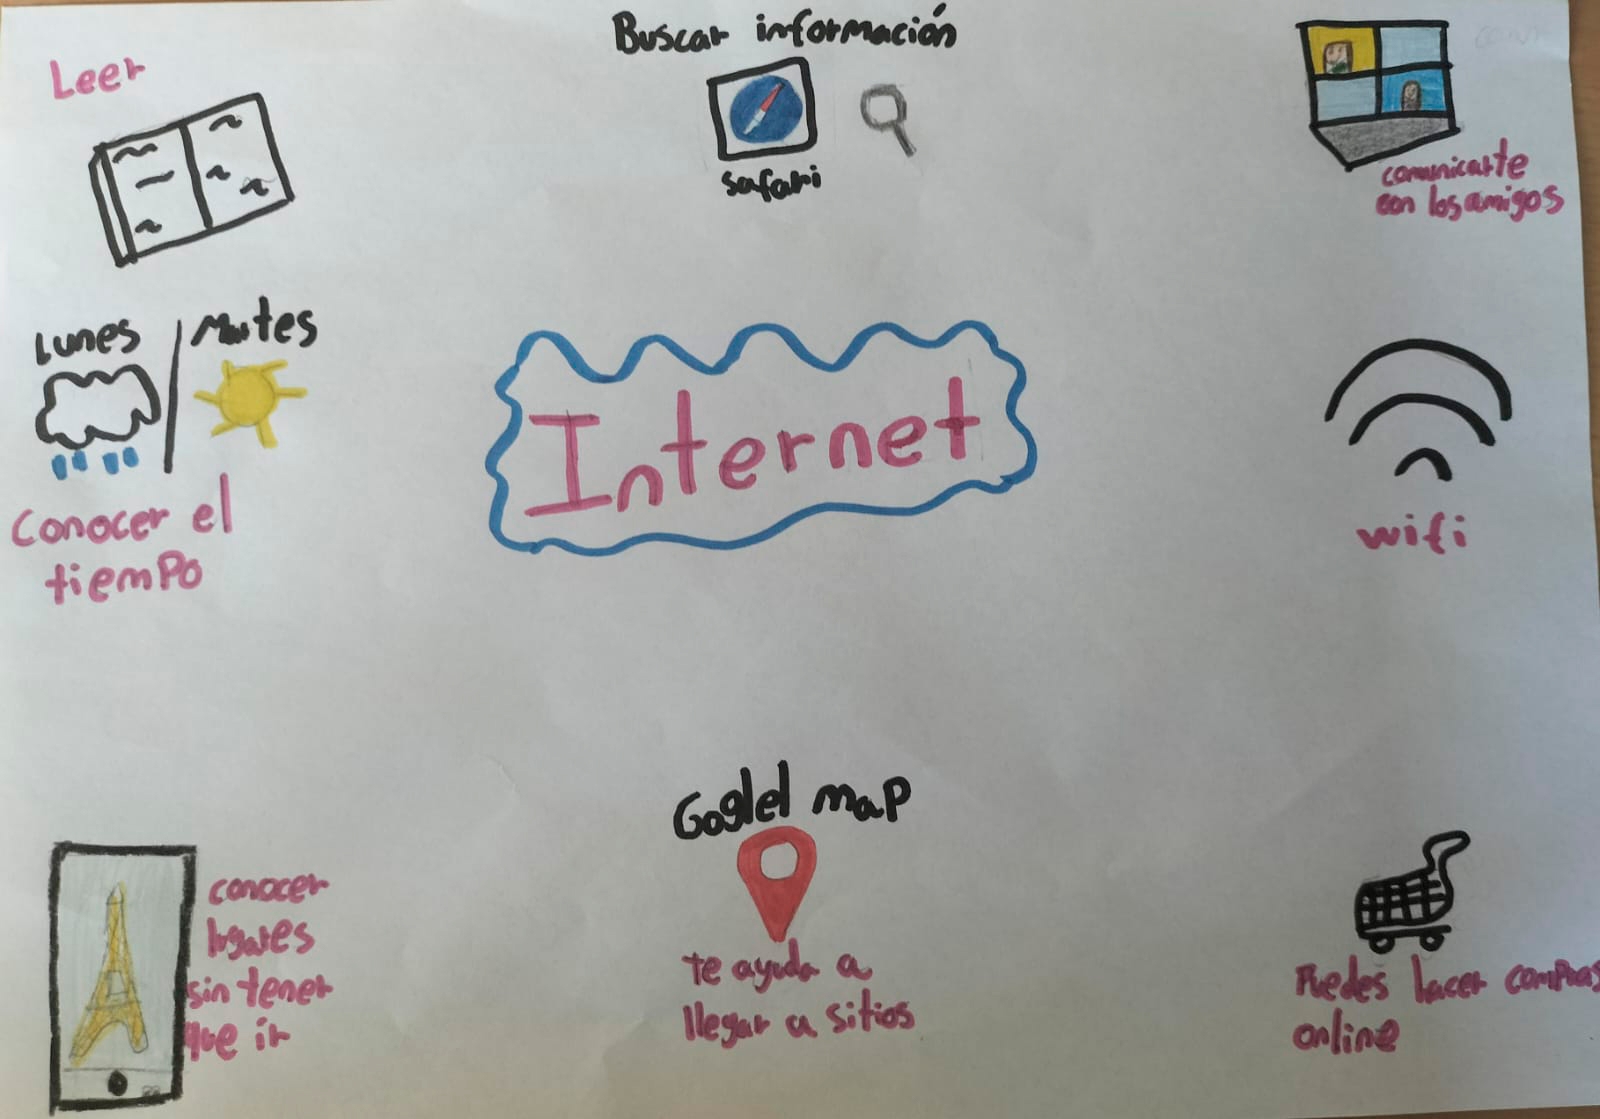 Leer
Buscar información
safari
comunicarte
con los amigos
Lunes / Martes
Conocer el
tiempo
Internet
wifi
conocer
lugares
sin tener
que ir
Goglel map
te ayuda a
llegar a sitios
Puedes hacer compras
online